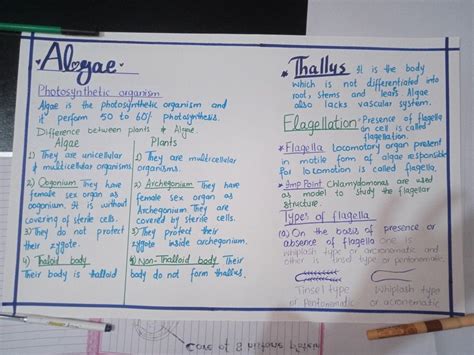 Algae
Photosynthetic organism
Algae is the photosynthetic organism and
it perform 50 to 60% photosynthesis.
Difference between plants & Algae.
Algae
1) They are unicellular
& multicellular organisms
2) Oogonium They have
female sex organ as
oogonium. it is without
covering of sterile cells.
3) They do not protect
their zygote.
4) Thaloid body
Their body is thalloid
Plants
1) They are multicellular
organisms.
2) Archegonium They have
female sex organ as
Archegonium They are
covered by sterile cells.
3) They protect their
zygote inside archegonium.
4) Non-Thalloid body Their
body do not form thallus.
* Thallus It is the body
which is not differentiated into
root, stems and leafs Algae
also lacks vascular system.
Flagellation Presence of flagella
on cell is called
flagellation.
* Flagella Locomotory organ present
in motile form of algae responsible
for locomotion is called flagella.
* Imp Point Chlamydomonas are used
as model to study the flagellar
structure.
Types of flagella
(a) On the basis of presence or
absence of flagella one is
whiplash type or acronematic and
other is tinsel type or pentonematic.
Tinsel type
of Pentonematic
Whiplash type
or acronematic